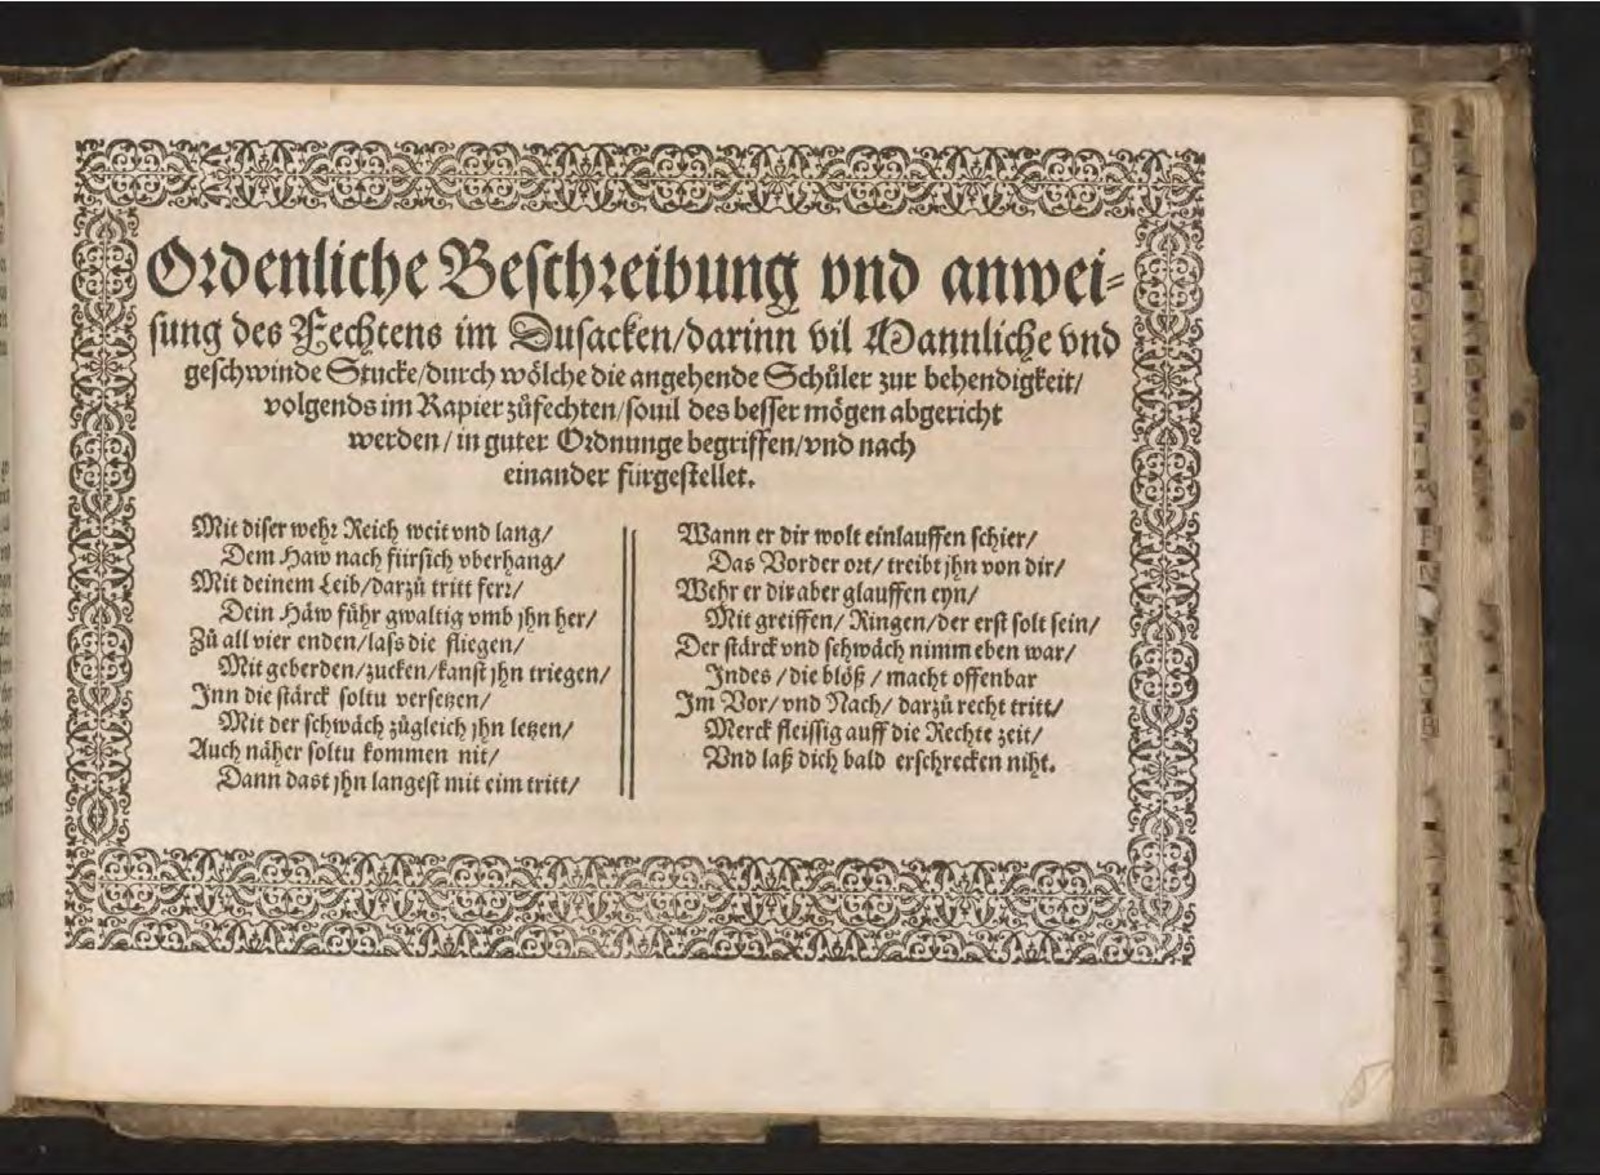 Ordenliche Beschreibung vnd anwei-
sung des Fechtens im Dusacken/darinn vil Mannliche vnd
geschwinde Stucke/durch wölche die angehende Schůler zur behendigkeit/
volgends im Rapier zůfechten/souil des besser mögen abgericht
werden/in guter Ordnunge begriffen/vnd nach
einander fürgestellet.
Mit diser wehr Reich weit vnd lang/
Dem Haw nach fürsich vberhang/
Mit deinem Leib/darzů tritt ferr/
Dein Häw führ gwaltig vmb jhn her/
Zů all vier enden/lass die fliegen/
Mit geberden/zucken/kanst jhn triegen/
Inn die stärck soltu versetzen/
Mit der schwäch zůgleich jhn letzen/
Auch näher soltu kommen nit/
Dann dast jhn langest mit eim tritt/
Wann er dir wolt einlauffen schier/
Das Vorder ort/ treibt jhn von dir/
Wehr er dir aber glauffen eyn/
Mit greiffen/ Ringen/der erst solt sein/
Der stärck vnd schwäch nimm eben war/
Indes /die blöß / macht offenbar
Im Vor/ vnd Nach/ darzů recht tritt/
Merck fleissig auff die Rechte zeit/
Vnd laß dich bald erschrecken niht.